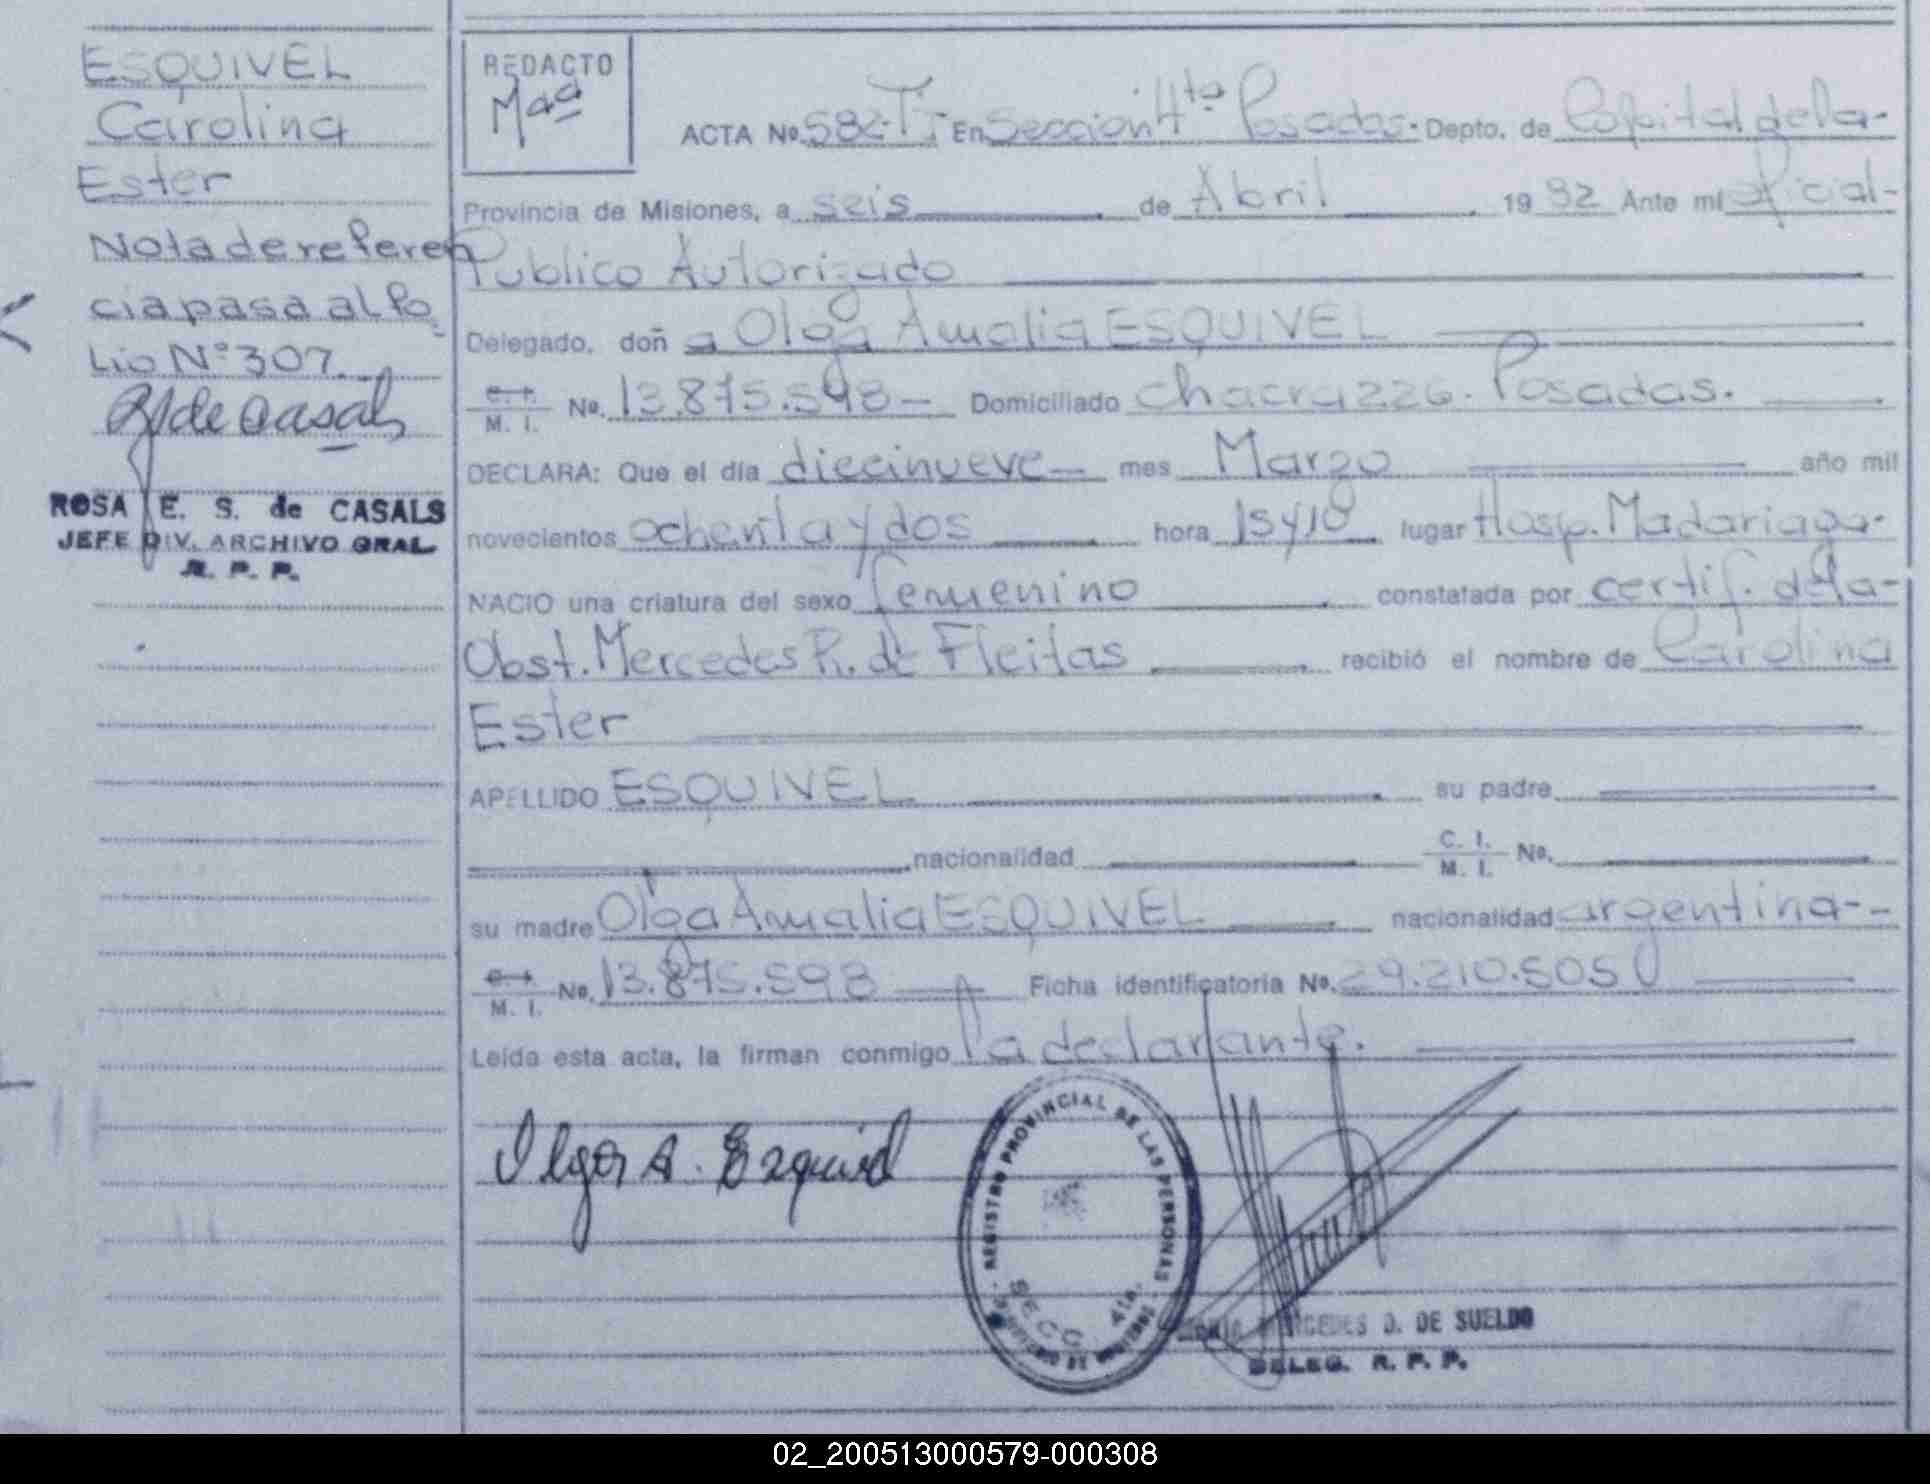 ESQUIVEL
Carolina
Ester
Nota de referen
cia pasa al fo
lio N° 307.
R de Casals
ROSA E. S. de CASALS
JEFE DIV. ARCHIVO GRAL.
R. P. P.
REDACTO
Maa
ACTA No. 582-TI En Sección 4ta Posadas. Depto. de Capital de la-
Provincia de Misiones, a seis de Abril 1982 Ante mi oficial-
Publico Autorizado
Delegado, doñ a Olga Amalia ESQUIVEL
C. I. / M. I. No. 13.875.598- Domiciliado chacra 226. Posadas.
DECLARA: Que el día diecinueve- mes Marzo año mil
novecientos ochenta y dos hora 15 y 10 lugar Hosp. Madariaga.
NACIO una criatura del sexo femenino constatada por certif. de la-
Obst. Mercedes R. de Fleitas recibió el nombre de Carolina
Ester
APELLIDO ESQUIVEL su padre
nacionalidad C. I. / M. I. No.
su madre Olga Amalia ESQUIVEL nacionalidad argentina--
C. I. / M. I. No. 13.875.598 Ficha identificatoria No. 29.210.505
Leída esta acta, la firman conmigo la declarante.
Olga A. Ezquivel
REGISTRO PROVINCIAL DE LAS PERSONAS
SECC. 4ta.
MERCEDES D. DE SUELDO
DELEG. R. P. P.
02_200513000579-000308